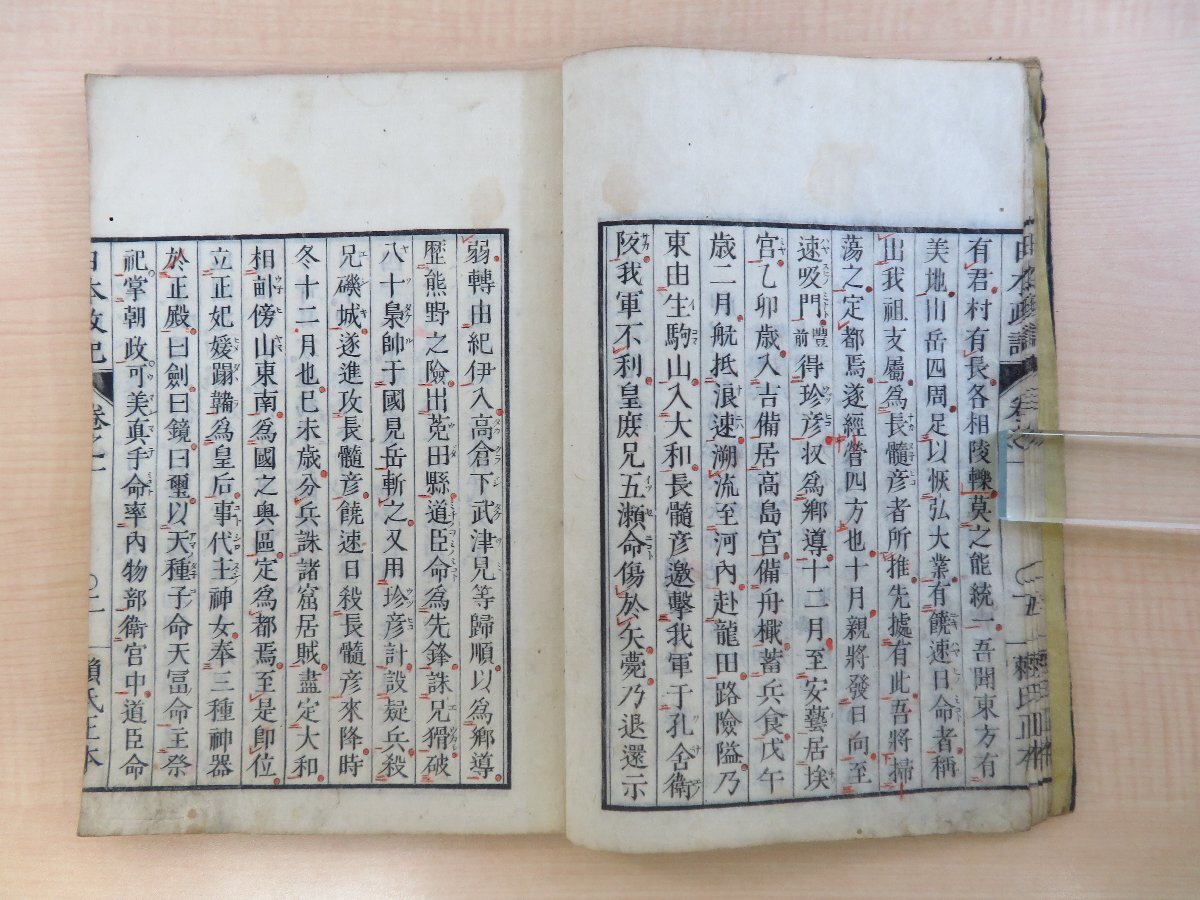 有君村有長各相陵轢莫之能統一吾聞東方有
美地山岳四周足以恢弘大業有饒速日命者稱
出我祖支屬爲長髓彦者所推先據有此吾將掃
蕩之定都焉遂經營四方也十月親將發日向至
速吸門豐前得珍彦収爲鄉導十二月至安藝居埃
宮乙卯歲入吉備居高島宮備舟檝蓄兵食戊午
歲二月航抵浪速溯流至河內赴龍田路險隘乃
東由生駒山入大和長髓彦邀擊我軍于孔舍衛
阪我軍不利皇庶兄五瀨命傷於矢薨乃退還示
弱轉由紀伊入高倉下武津見等歸順以爲鄉導
歷熊野之險出菟田縣道臣命爲先鋒誅兄猾破
八十梟帥于國見岳斬之又用珍彦計設疑兵殺
兄磯城遂進攻長髓彦饒速日殺長髓彦來降時
冬十二月也己未歲分兵誅諸窟居賊盡定大和
相畝傍山東南爲國之奧區定爲都焉至是卽位
立正妃媛蹈鞴爲皇后事代主神女奉三種神器
於正殿曰劍曰鏡曰璽以天種子命天富命主祭
祀掌朝政可美真手命率內物部衛宮中道臣命
日本政記
卷之一
〇二
賴氏正本